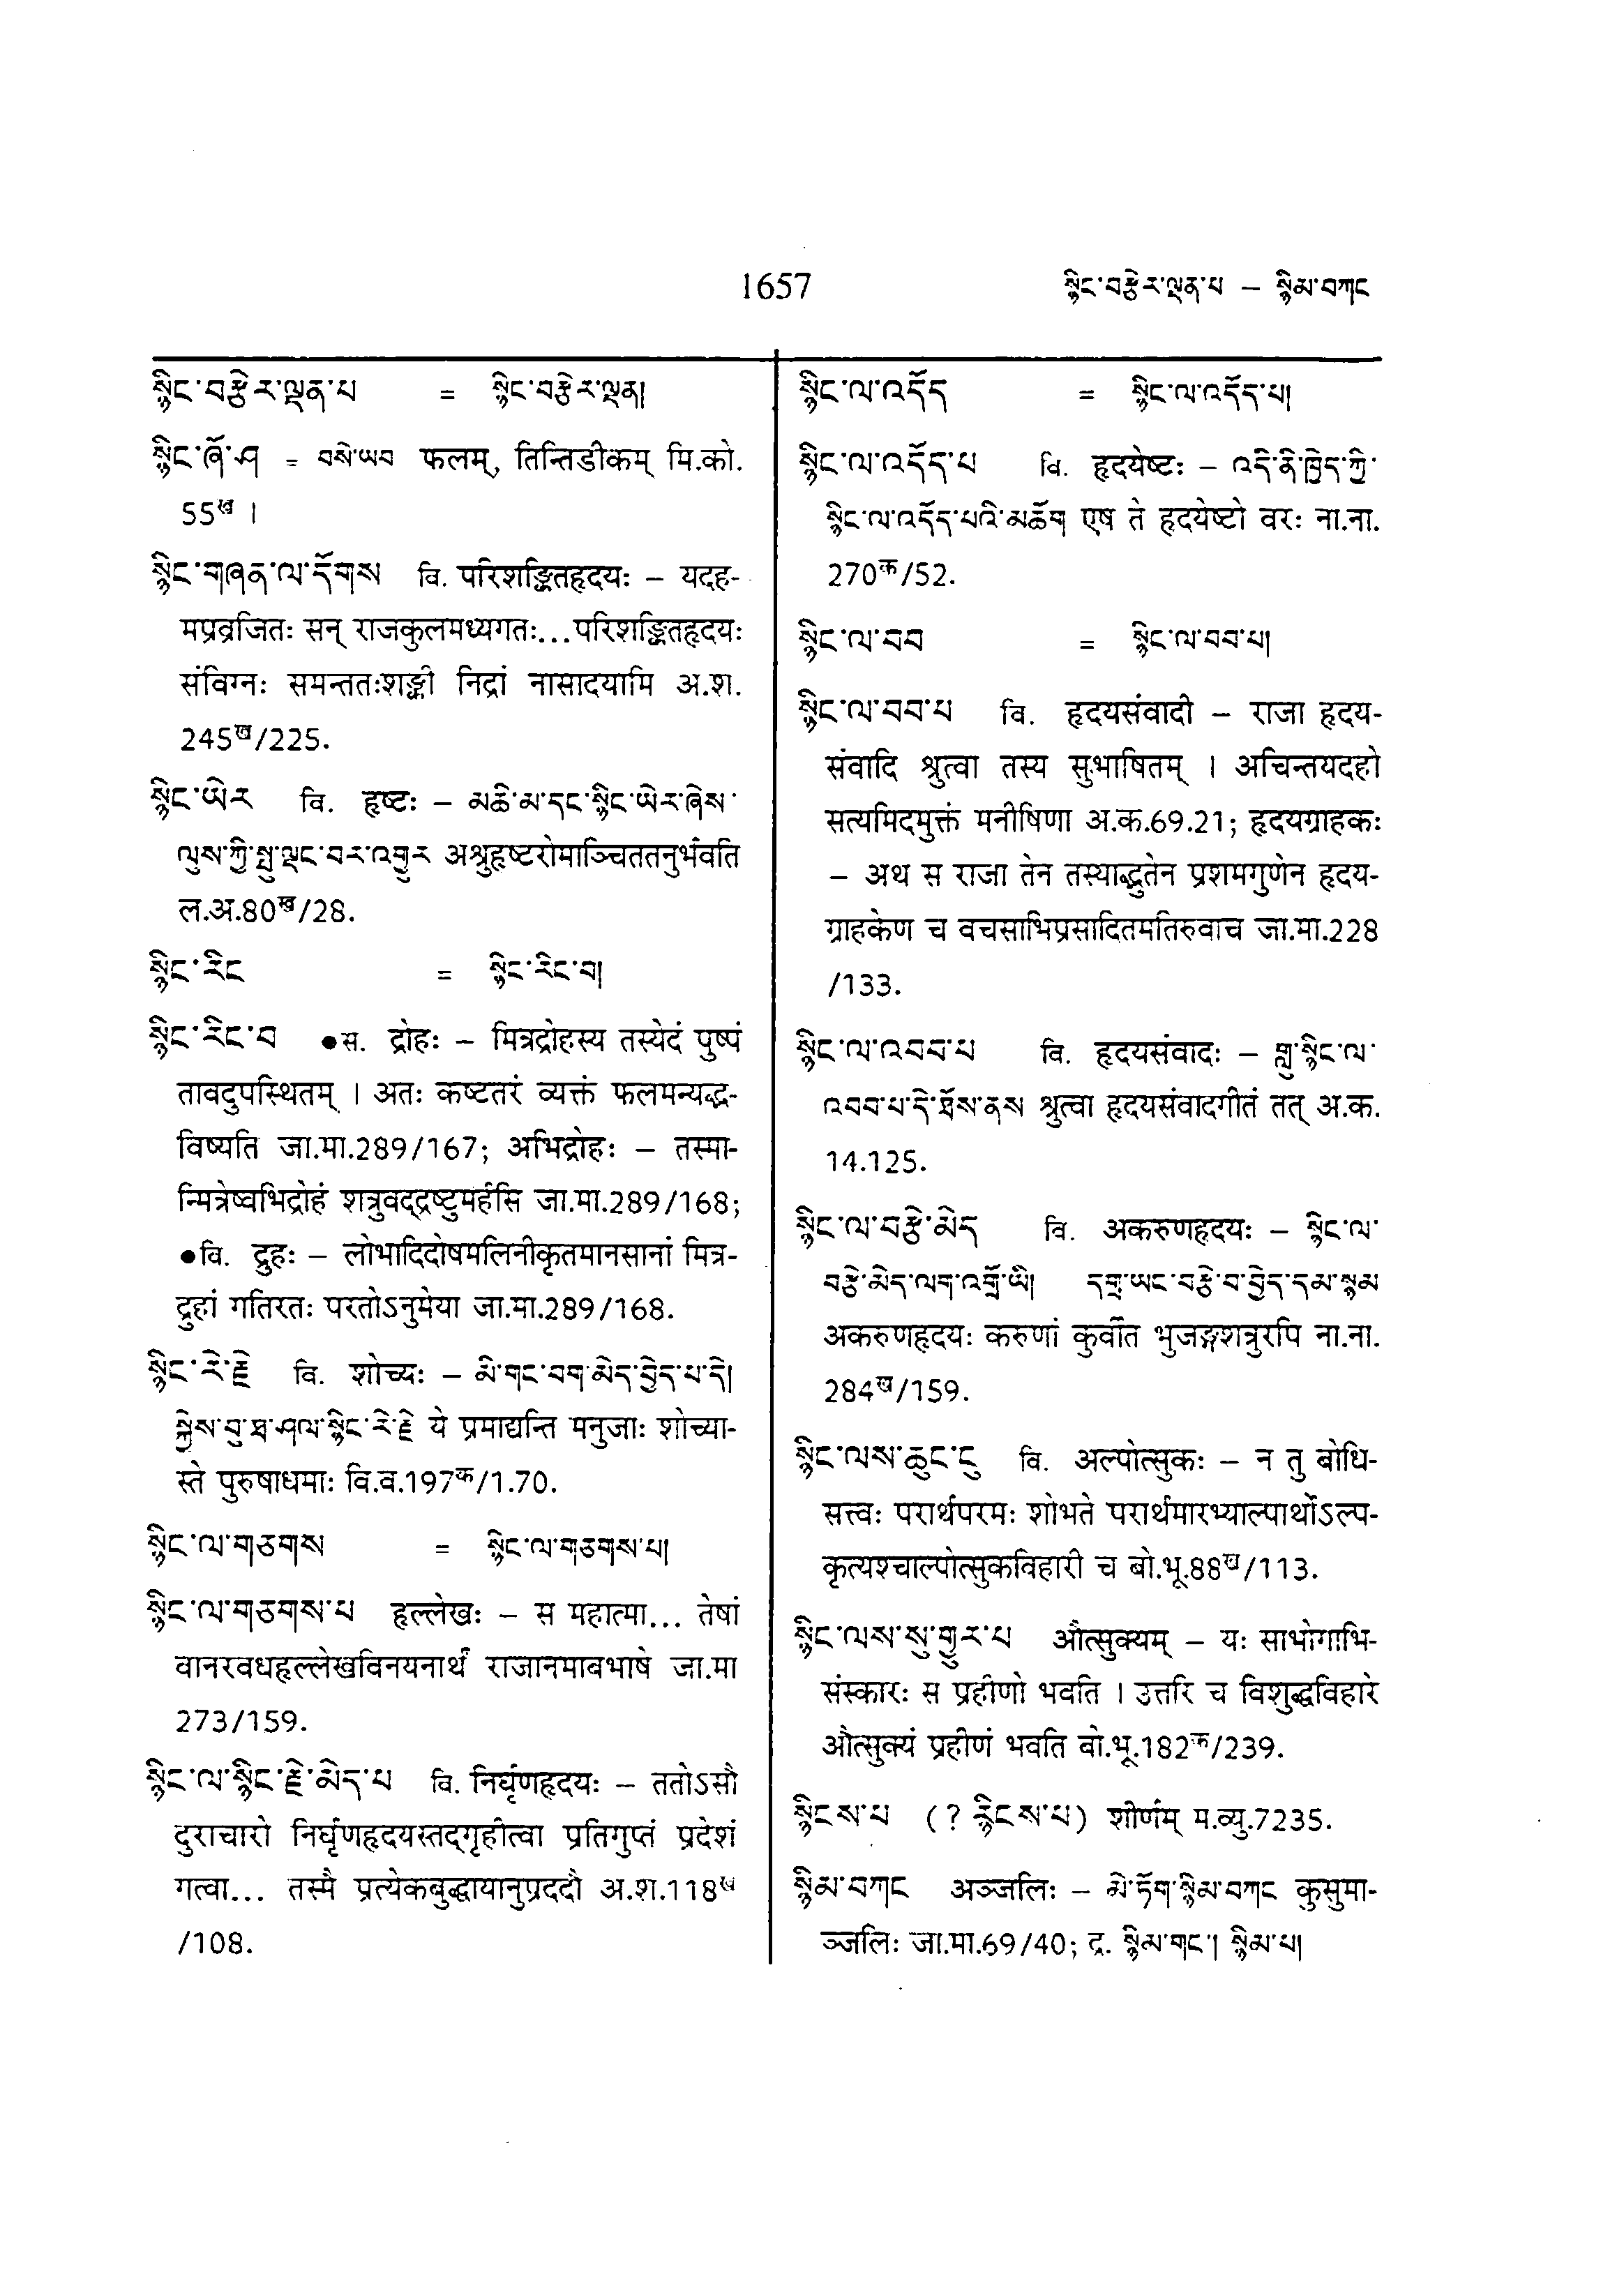 1657
སྙིང་བརྩེར་ལྡན་པ – སྙིམ་བཀང
སྙིང་བརྩེར་ལྡན་པ = སྙིང་བརྩེར་ལྡན།
སྙིང་ཞོ་ཤ = བསེ་ཡབ फलम्, तिन्तिडीकम् मि.को.
55ख ।
སྙིང་གཞན་ལ་དོགས वि. परिशङ्कितहृदयः – यदह-
मप्रव्रजितः सन् राजकुलमध्यगतः...परिशङ्कितहृदयः
संविग्नः समन्ततःशङ्की निद्रां नासादयामि अ.श.
245ख/225.
སྙིང་ཡེར वि. हृष्टः – མཆི་མ་དང་སྙིང་ཡེར་ཞེས་
ལུས་ཀྱི་སྤུ་ལྡང་བར་འགྱུར अश्रुहृष्टरोमाञ्चिततनुर्भवति
ल.अ.80ख/28.
སྙིང་རིང = སྙིང་རིང་བ།
སྙིང་རིང་བ ●स. द्रोहः – मित्रद्रोहस्य तस्येदं पुष्पं
तावदुपस्थितम् । अतः कष्टतरं व्यक्तं फलमन्यद्भ-
विष्यति जा.मा.289/167; अभिद्रोहः – तस्मा-
न्मित्रेष्वभिद्रोहं शत्रुवद्द्रष्टुमर्हसि जा.मा.289/168;
●वि. द्रुहः – लोभादिदोषमलिनीकृतमानसानां मित्र-
द्रुहां गतिरतः परतोऽनुमेया जा.मा.289/168.
སྙིང་རེ་རྗེ वि. शोच्यः – མི་གང་བག་མེད་བྱེད་པ་དེ།
སྐྱེས་བུ་ཐ་ཤལ་སྙིང་རེ་རྗེ ये प्रमाद्यन्ति मनुजाः शोच्या-
स्ते पुरुषाधमाः वि.व.197क/1.70.
སྙིང་ལ་གཅགས = སྙིང་ལ་གཅགས་པ།
སྙིང་ལ་གཅགས་པ हृल्लेखः – स महात्मा... तेषां
वानरवधहृल्लेखविनयनार्थं राजानमाबभाषे जा.मा
273/159.
སྙིང་ལ་སྙིང་རྗེ་མེད་པ वि. निर्घृणहृदयः – ततोऽसौ
दुराचारो निर्घृणहृदयस्तद्गृहीत्वा प्रतिगुप्तं प्रदेशं
गत्वा... तस्मै प्रत्येकबुद्धायानुप्रददौ अ.श.118ख
/108.
སྙིང་ལ་འདོད = སྙིང་ལ་འདོད་པ།
སྙིང་ལ་འདོད་པ वि. हृदयेष्टः – འདི་ནི་ཁྱེད་ཀྱི་
སྙིང་ལ་འདོད་པའི་མཆོག एष ते हृदयेष्टो वरः ना.ना.
270क/52.
སྙིང་ལ་བབ = སྙིང་ལ་བབ་པ།
སྙིང་ལ་བབ་པ वि. हृदयसंवादी – राजा हृदय-
संवादि श्रुत्वा तस्य सुभाषितम् । अचिन्तयदहो
सत्यमिदमुक्तं मनीषिणा अ.क.69.21; हृदयग्राहकः
– अथ स राजा तेन तस्याद्भुतेन प्रशमगुणेन हृदय-
ग्राहकेण च वचसाभिप्रसादितमतिरुवाच जा.मा.228
/133.
སྙིང་ལ་འབབ་པ वि. हृदयसंवादः – གླུ་སྙིང་ལ་
འབབ་པ་དེ་ཐོས་ནས श्रुत्वा हृदयसंवादगीतं तत् अ.क.
14.125.
སྙིང་ལ་བརྩེ་མེད वि. अकरुणहृदयः – སྙིང་ལ་
བརྩེ་མེད་ལག་འགྲོ་ཡི། དགྲ་ཡང་བརྩེ་བ་བྱེད་དམ་སྙམ
अकरुणहृदयः करुणां कुर्वीत भुजङ्गशत्रुरपि ना.ना.
284ख/159.
སྙིང་ལས་ཆུང་ངུ वि. अल्पोत्सुकः – न तु बोधि-
सत्त्वः परार्थपरमः शोभते परार्थमारभ्याल्पार्थोऽल्प-
कृत्यश्चाल्पोत्सुकविहारी च बो.भू.88ख/113.
སྙིང་ལས་སུ་གྱུར་པ औत्सुक्यम् – यः साभोगाभि-
संस्कारः स प्रहीणो भवति । उत्तरि च विशुद्धविहारे
औत्सुक्यं प्रहीणं भवति बो.भू.182क/239.
སྙིངས་པ (? རྙིངས་པ) शीर्णम् म.व्यु.7235.
སྙིམ་བཀང अञ्जलिः – མེ་ཏོག་སྙིམ་བཀང कुसुमा-
ञ्जलिः जा.मा.69/40; द्र. སྙིམ་གང་། སྙིམ་པ།